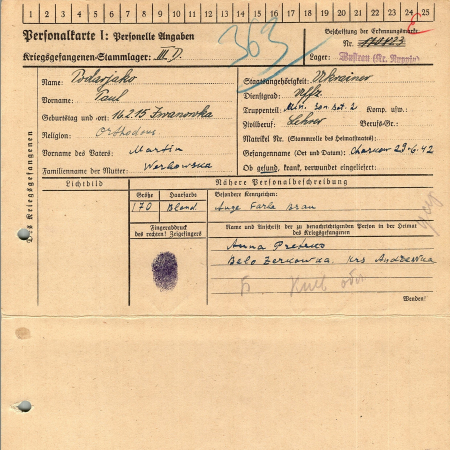 1 2 3 4 5 6 7 8 9 10 11 12 13 14 15 16 17 18 19 20 21 22 23 24 25
Personalkarte I: Personelle Angaben
Kriegsgefangenen-Stammlager: III D.
363
Beschriftung der Erkennungsmarke
Nr.
Lager:
Des Kriegsgefangenen
Name: Podarjako
Vorname: Paul
Geburtstag und -ort: 16.2.15 Iwanowka
Religion: Orthodox
Vorname des Vaters: Martin
Familienname der Mutter: Werbowska
Staatsangehörigkeit: Ukrainer
Dienstgrad: Uffz
Truppenteil: Min. San. bat. 2 Komp. usw.:
Zivilberuf: Lehrer Berufs-Gr.:
Matrikel Nr. (Stammrolle des Heimatstaates):
Gefangennahme (Ort und Datum): Charkow 23.6.42
Ob gesund, krank, verwundet eingeliefert:
Lichtbild
Nähere Personalbeschreibung
Größe Haarfarbe Besondere Kennzeichen:
170 Blond Auge Farbe Braun
Fingerabdruck
des rechten! Zeigefingers
Name und Anschrift der zu benachrichtigenden Person in der Heimat
des Kriegsgefangenen
Anna
Belo Zerkowka, Krs
Wenden!